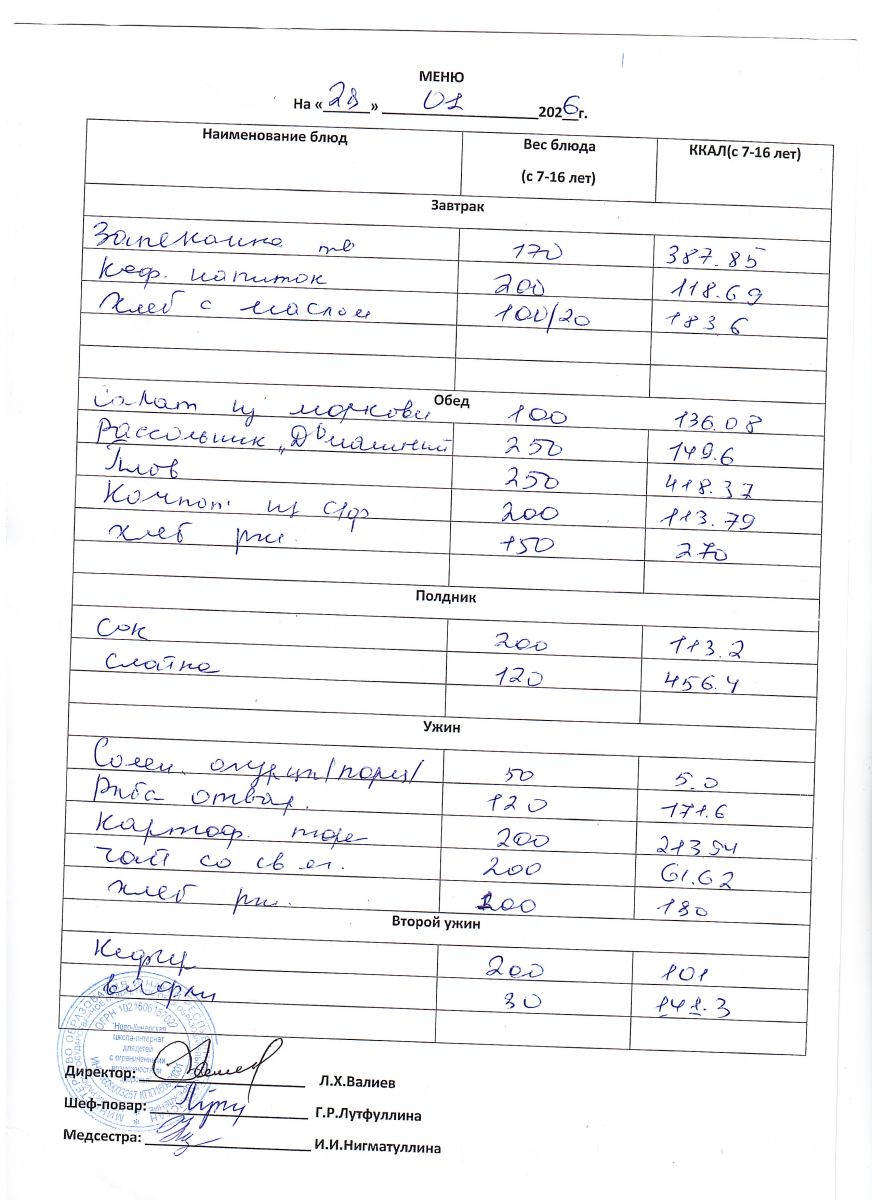 МЕНЮ
На «28» 01 2026г.
Наименование блюд Вес блюда (с 7-16 лет) ККАЛ(с 7-16 лет)
Завтрак
Запеканка тв 170 387.85
Коф. напиток 200 118.69
Хлеб с маслом 100/20 183.6
Обед
Салат из моркови 100 136.08
Рассольник „Домашний 250 149.6
Плов 250 418.37
Компот из с/ф 200 113.79
Хлеб рж. 150 270
Полдник
Сок 200 113.2
Слойка 120 456.4
Ужин
Солен. огурцы/порц/ 50 5.0
Рыба отвар. 120 171.6
Картоф. пюре 200 213.54
Чай со сл 200 61.62
Хлеб рж. 200 180
Второй ужин
Кефир 200 101
Вафли 30 141.3
ОГРН 1021606151027
"Ново-Кинерская
школа-интернат
для детей
с ограниченными
возможностями
Директор: Л.Х.Валиев
Шеф-повар: Г.Р.Лутфуллина
Медсестра: И.И.Нигматуллина